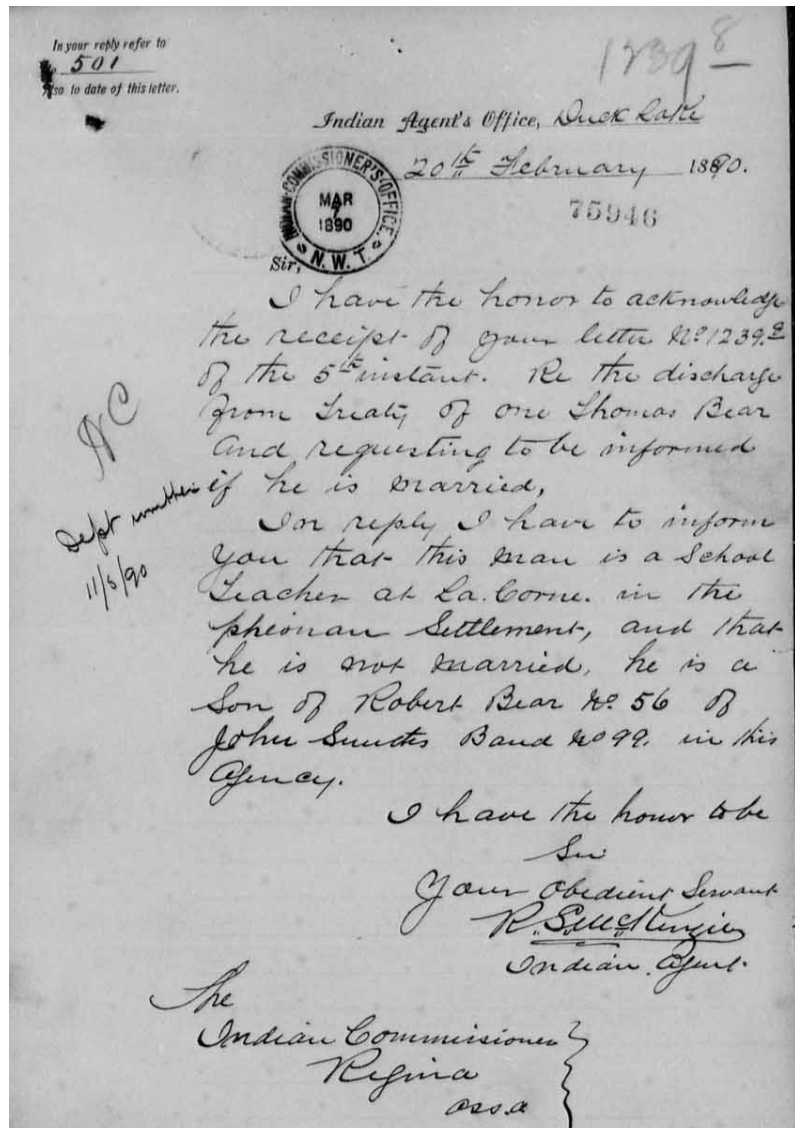 In your reply refer to
501
Also to date of this letter.
1239 8
Indian Agent's Office, Duck Lake
20th February 1890.
INDIAN COMMISSIONER'S OFFICE.
MAR
7
1890
N. W. T.
75946
Sir,
I have the honor to acknowledge
the receipt of your letter No 1239.
of the 5th instant. Re the discharge
from Treaty of one Thomas Bear
and requesting to be informed
if he is married,
In reply I have to inform
you that this man is a School
Teacher at La. Corne. in the
Settlement, and that
he is not married, he is a
Son of Robert Bear No. 56 of
John Smiths Band No 99. in this
Agency.
HC
Dept written
11/3/90
I have the honor to be
Sir
Your Obedient Servant
R. S. McKenzie
Indian. Agent.
The
Indian Commissioner
Regina
Assa